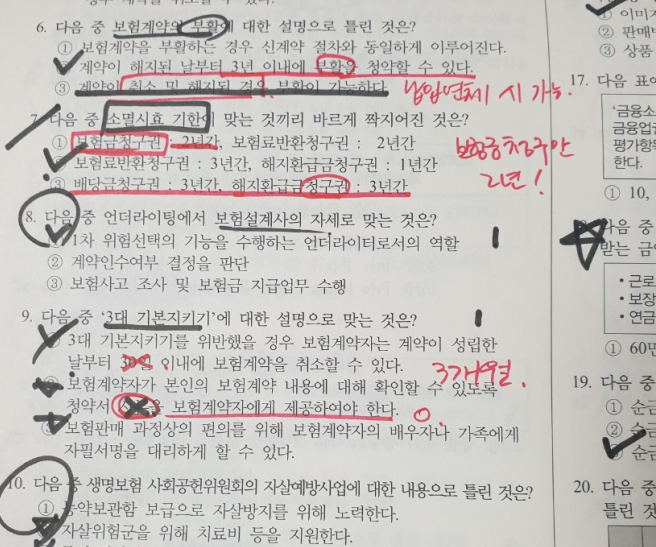 6. 다음 중 보험계약의 부활에 대한 설명으로 틀린 것은?
① 보험계약을 부활하는 경우 신계약 절차와 동일하게 이루어진다.
계약이 해지된 날부터 3년 이내에 부활을 청약할 수 있다.
③ 계약이 취소 및 해지된 경우 부활이 가능하다.
납입연체 시 가능.
7. 다음 중 소멸시효 기한이 맞는 것끼리 바르게 짝지어진 것은?
① 보험금청구권 : 2년, 보험료반환청구권 : 2년
보험료반환청구권 : 3년, 해지환급금청구권 : 1년
③ 배당금청구권 : 3년, 해지환급금청구권 : 3년
2년!
8. 다음 중 언더라이팅에서 보험설계사의 자세로 맞는 것은?
① 1차 위험선택의 기능을 수행하는 언더라이터로서의 역할
② 계약인수여부 결정을 판단
③ 보험사고 조사 및 보험금 지급업무 수행
9. 다음 중 '3대 기본지키기'에 대한 설명으로 맞는 것은?
3대 기본지키기를 위반했을 경우 보험계약자는 계약이 성립한
날부터 30일 이내에 보험계약을 취소할 수 있다.
3개월.
보험계약자가 본인의 보험계약 내용에 대해 확인할 수 있도록
청약서 보험계약자에게 제공하여야 한다.
보험판매 과정상의 편의를 위해 보험계약자의 배우자나 가족에게
자필서명을 대리하게 할 수 있다.
10. 다음 중 생명보험 사회공헌위원회의 자살예방사업에 대한 내용으로 틀린 것은?
① 농약보관함 보급으로 자살방지를 위해 노력한다.
자살위험군을 위해 치료비 등을 지원한다.
① 이미지
② 판매
③ 상품
17. 다음 표
'금융소
금융업권
평가항목
한다.
① 10,
다음 중
받는 금
• 근로
• 보장
• 연금
① 60만
19. 다음 중
① 순금
② 순금
순금
20. 다음 중
틀린 것